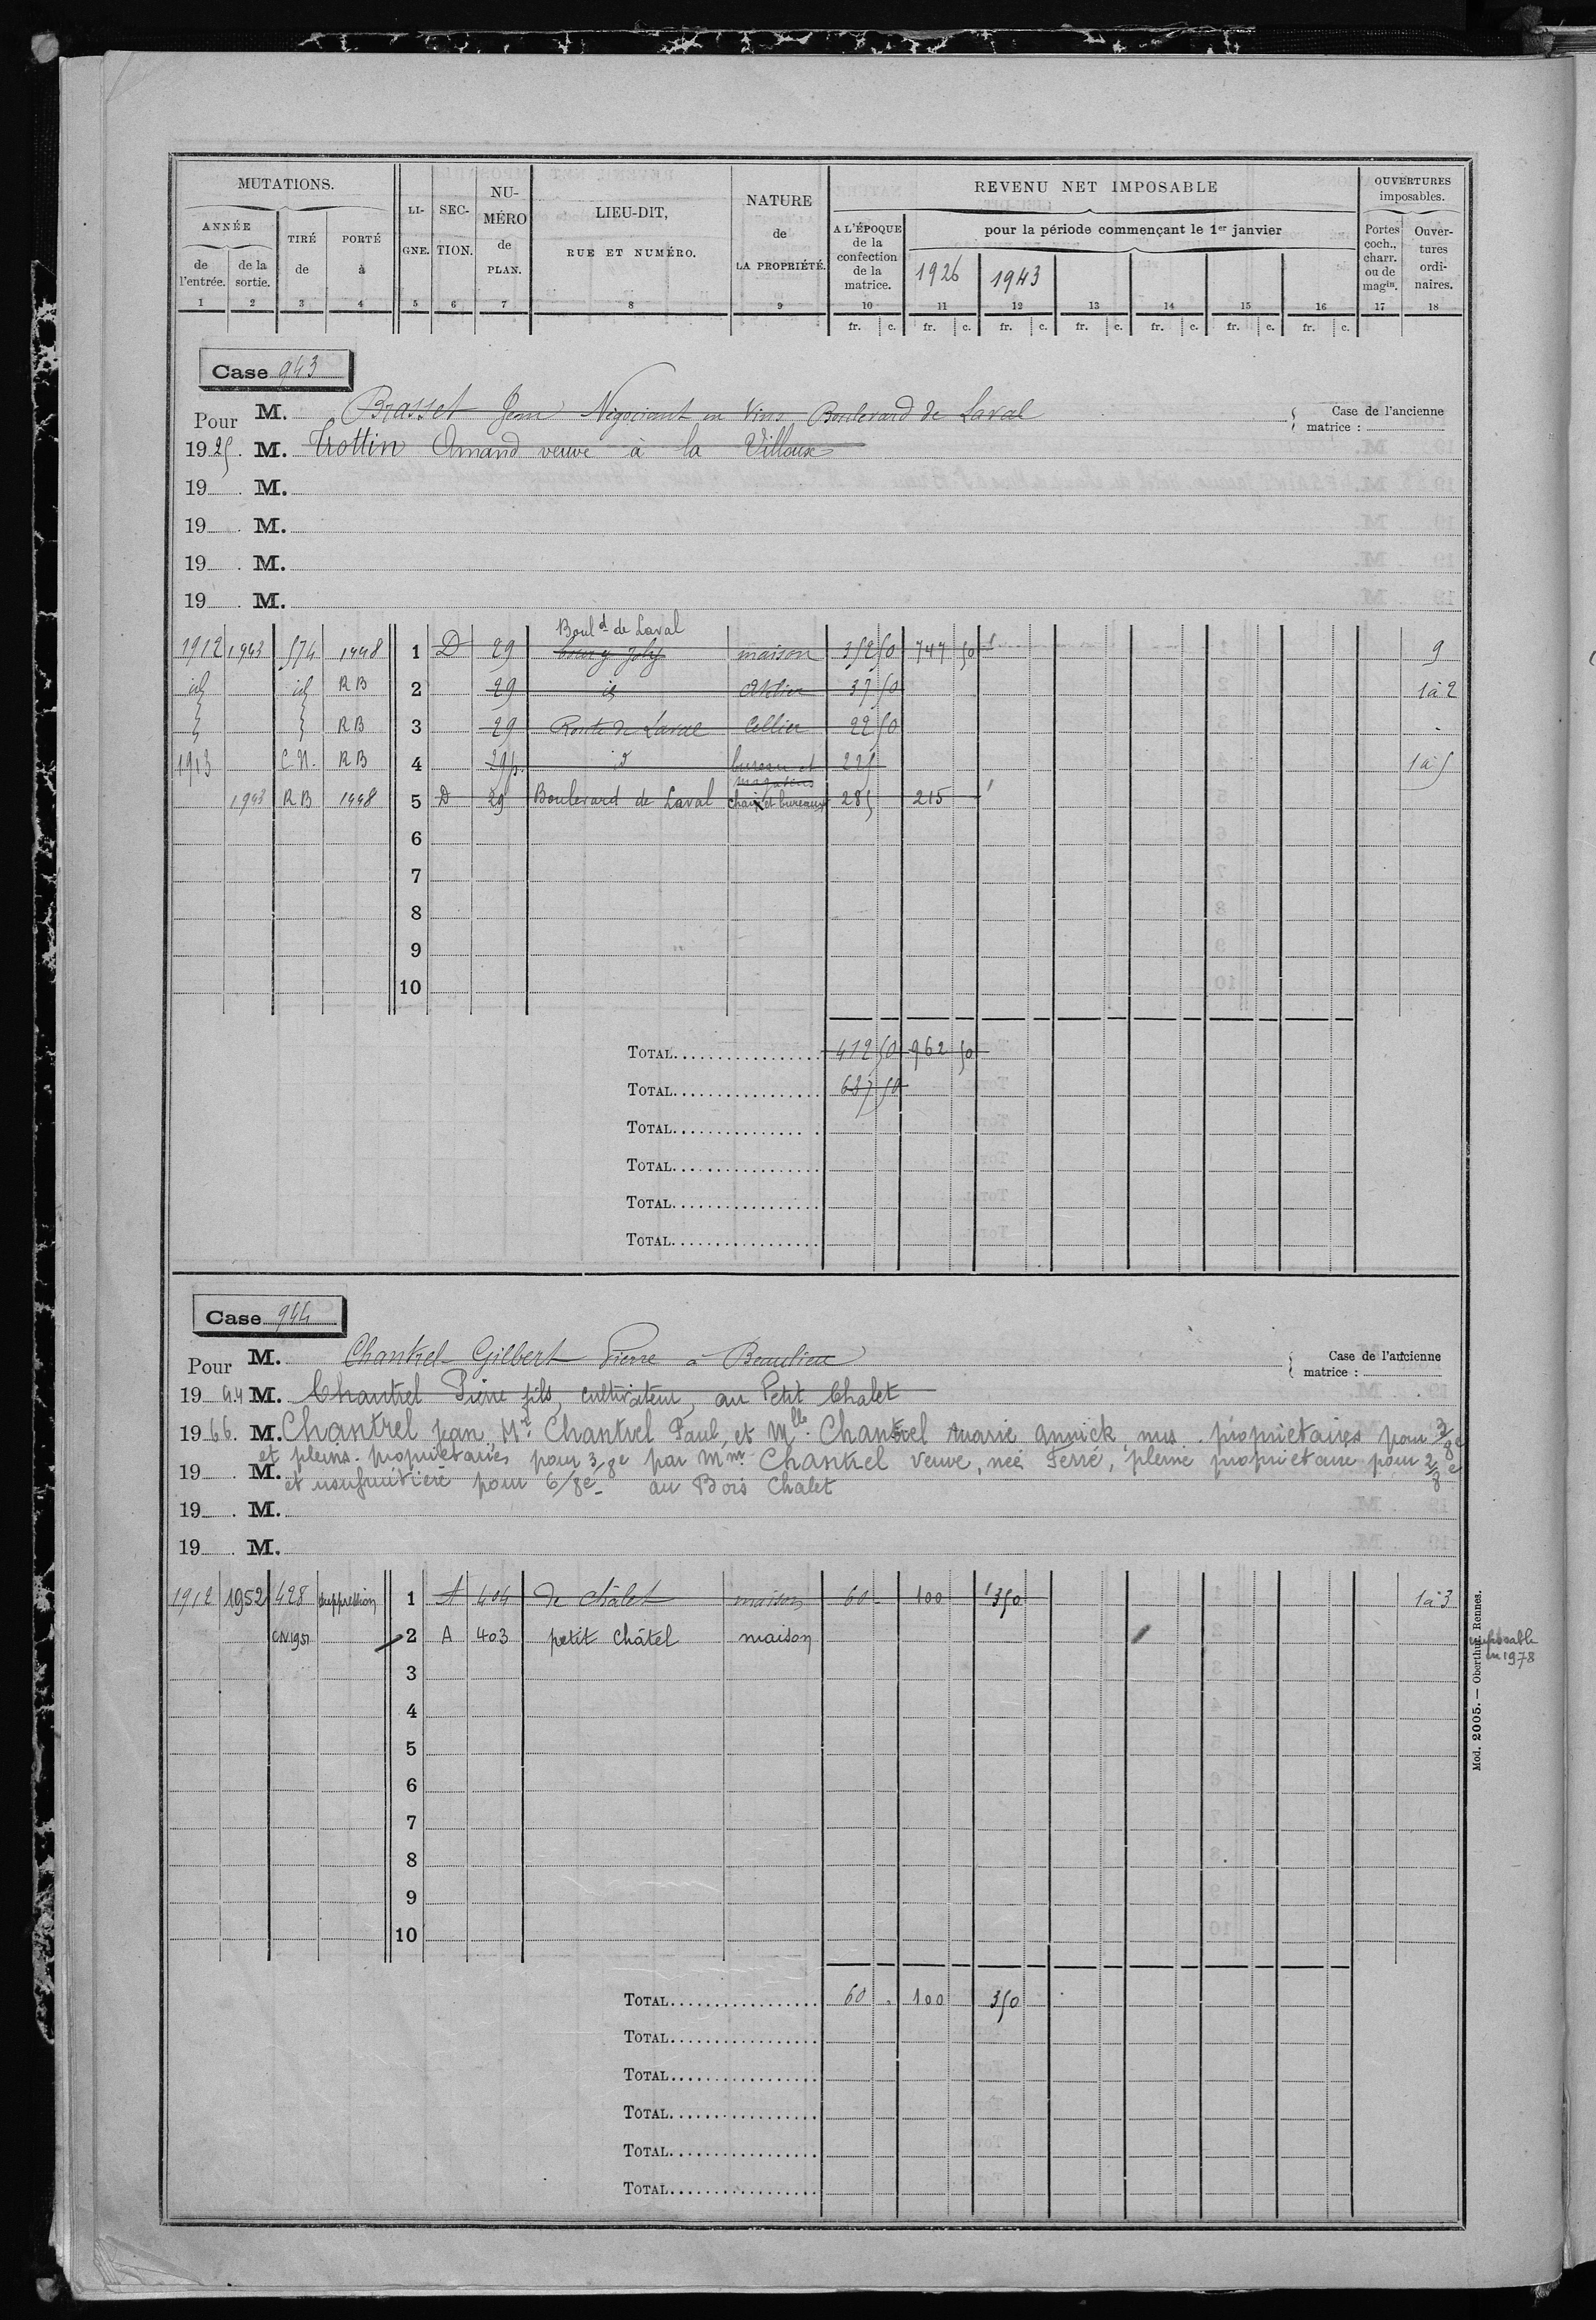 MUTATIONS. LI- SEC- NU- LIEU-DIT, NATURE REVENU NET IMPOSABLE OUVERTURES imposables.
ANNÉE TIRÉ PORTÉ GNE. TION. MÉRO RUE ET NUMÉRO. de A L'ÉPOQUE pour la période commençant le 1er janvier Portes Ouver-
de de la de à de LA PROPRIÉTÉ. de la confection de la matrice. 1926 1943 coch., charr. ou de magin. tures ordi- naires.
l'entrée. sortie. PLAN.
1 2 3 4 5 6 7 8 9 10 11 12 13 14 15 16 17 18
fr. c. fr. c. fr. c. fr. c. fr. c. fr. c. fr. c.
Case 943
Pour M. Brasset Jean Négociant en Vins Boulevard de Laval Case de l'ancienne matrice :
1925. M. Trottin Amand veuve à la Villoux
19 . M.
19 . M.
19 . M.
19 . M.
Bould de Laval
1912 1943 574 1448 1 D 29 maison 352 50 747 50 9
id id RB 2 29 id Atelier 37 50 1 à 2
RB 3 29 Route de Laval Cellier 22 50
1913 C.N. RB 4 29p. id bureau et magasins 225 1 à 5
1943 RB 1448 5 D 29 Boulevard de Laval chais et bureaux 285 215
6
7
8
9
10
TOTAL 412 50 962 50
TOTAL 637 50
TOTAL
TOTAL
TOTAL
TOTAL
Case 944
Pour M. Chantrel Gilbert Pierre à Beaulieu Case de l'ancienne matrice :
1944 M. Chantrel Pierre fils, cultivateur, au Petit Chalet
1966. M. Chantrel Jean, Mr Chantrel Paul, et Mlle Chantrel Marie Annick, nus propriétaires pour 3/8e
et pleins-propriétaires pour 3/8e par Mme Chantrel veuve, née Ferré, pleine propriétaire pour 2/8e
19 . M. et usufruitière pour 6/8e - au Bois Chalet
19 . M.
19 . M.
1912 1952 428 suppression 1 A 404 de Châlet maison 60 100 350 1 à 3
CN 1951 2 A 403 petit Châtel maison imposable en 1978
3
4
5
6
7
8
9
10
TOTAL 60 100 350
TOTAL
TOTAL
TOTAL
TOTAL
TOTAL
Mod. 2005. — Oberthur, Rennes.